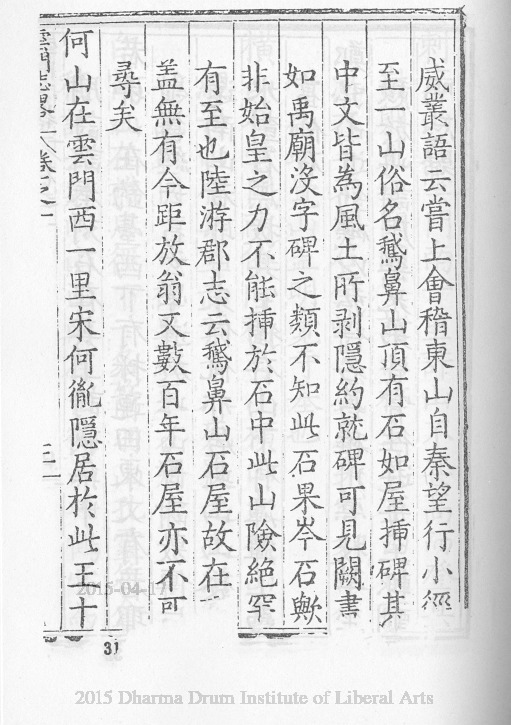 威叢語云嘗上會稽東山自秦望行小徑
至一山俗名鵝鼻山頂有石如屋揷碑其
中文皆為風土所剥隱約就碑可見闕書
如禹廟没字碑之類不知此石果岑石歟
非始皇之力不能揷於石中此山險絶罕
有至也陸游郡志云鵝鼻山石屋故在
盖無有今距放翁又數百年石屋亦不可
尋矣
何山在雲門西一里宋何胤隱居於此王十
雲門志畧 卷之一
31
2015-04-17
2015 Dharma Drum Institute of Liberal Arts